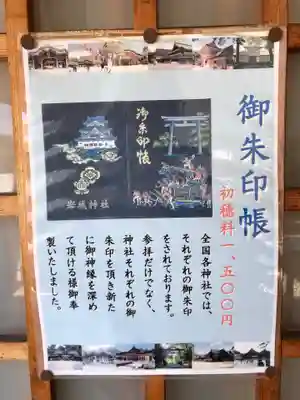 御朱印帳
初穂料一、五〇〇円
御朱印帳
岩槻神社
全国各神社では、
それぞれの御朱印
をされております。
参拝だけでなく、
神社それぞれの御
朱印を頂き新た
に御神縁を深め
て頂ける様御奉
製いたしました。